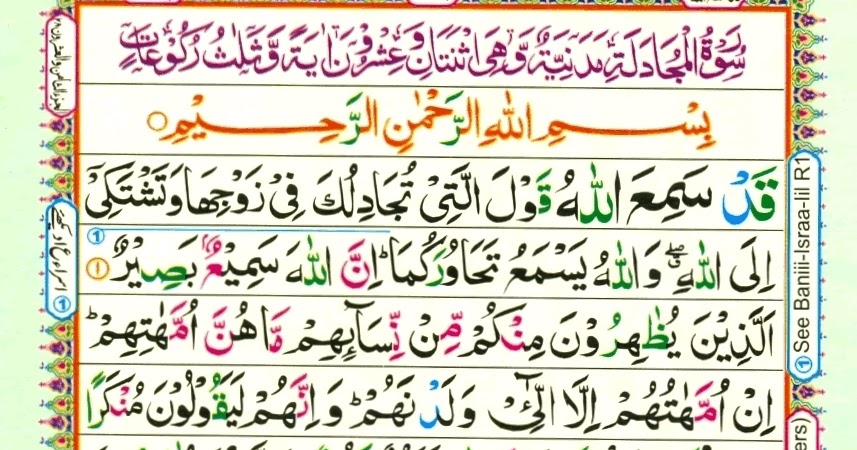 سُوْرَةُ الْمُجَادَلَةِ مَدَنِيَّةٌ وَّهِيَ اثْنَتَانِ وَعِشْرُوْنَ اٰيَةً وَّثَلٰثُ رُكُوْعَاتٍ
بِسْمِ اللهِ الرَّحْمٰنِ الرَّحِيْمِ
قَدْ سَمِعَ اللهُ قَوْلَ الَّتِيْ تُجَادِلُكَ فِيْ زَوْجِهَا وَتَشْتَكِيْٓ
اِلَى اللهِ ۖ وَاللهُ يَسْمَعُ تَحَاوُرَكُمَا ؕ اِنَّ اللهَ سَمِيْعٌۢ بَصِيْرٌ ۱
اَلَّذِيْنَ يُظٰهِرُوْنَ مِنْكُمْ مِّنْ نِّسَآىِٕهِمْ مَّا هُنَّ اُمَّهٰتِهِمْ ؕ
اِنْ اُمَّهٰتُهُمْ اِلَّا الّٰٓـِٔيْ وَلَدْنَهُمْ ؕ وَاِنَّهُمْ لَيَقُوْلُوْنَ مُنْكَرًا
① See Baniii-Israa-Iil R1
①